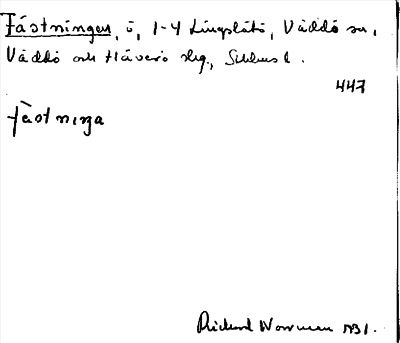 Fästningen, ö, 1-4 Lingslätö, Väddö sn,
Väddö och Häverö skg., Sthlms l.
447
fàstniŋa
Rickard Wornman 1931.